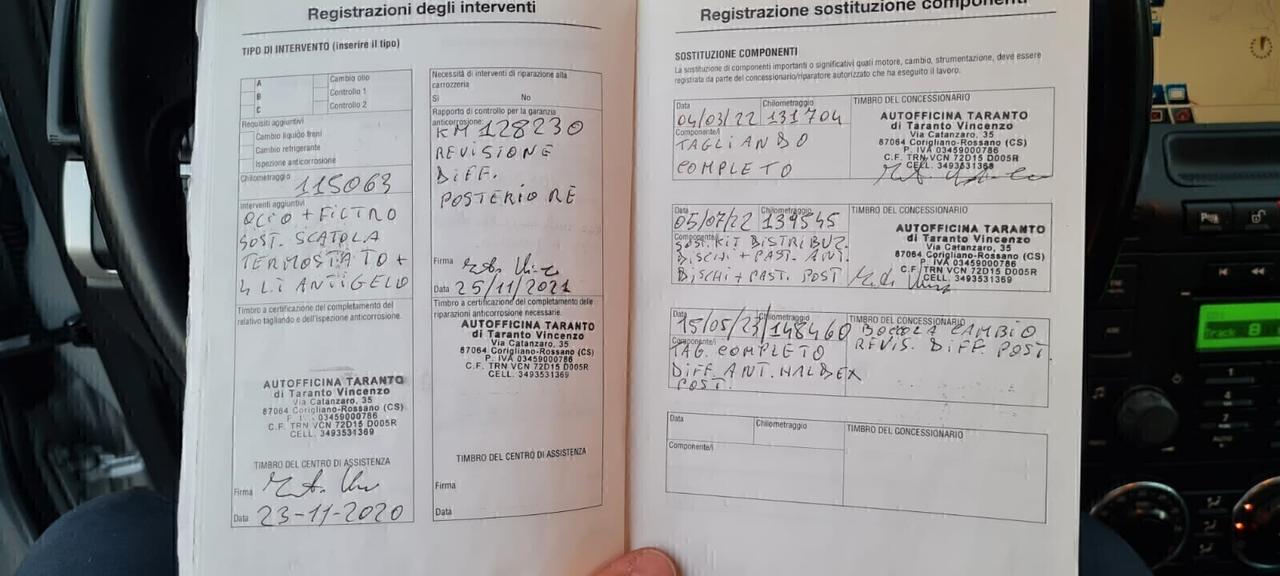 Registrazioni degli interventi
TIPO DI INTERVENTO (inserire il tipo)
A
B
C
Cambio olio
Controllo 1
Controllo 2
Requisiti aggiuntivi
Cambio liquido freni
Cambio refrigerante
Ispezione anticorrosione
Chilometraggio 115063
Interventi aggiuntivi
OLIO + FILTRO
SOST. SCATOLA
TERMOSTATO +
4 LI ANTIGELO
Timbro a certificazione del completamento del
relativo tagliando e dell'ispezione anticorrosione.
AUTOFFICINA TARANTO
di Taranto Vincenzo
Via Catanzaro, 35
87064 Corigliano-Rossano (CS)
P. IVA 03459000786
C.F. TRN VCN 72D15 D005R
CELL. 3493531369
TIMBRO DEL CENTRO DI ASSISTENZA
Firma
Data 23-11-2020
Necessità di interventi di riparazione alla
carrozzeria
Sì No
Rapporto di controllo per la garanzia
anticorrosione:
KM 128230
REVISIONE
DIFF.
POSTERIORE
Firma
Data 25/11/2021
Timbro a certificazione del completamento delle
riparazioni anticorrosione necessarie.
AUTOFFICINA TARANTO
di Taranto Vincenzo
Via Catanzaro, 35
87064 Corigliano-Rossano (CS)
P. IVA 03459000786
C.F. TRN VCN 72D15 D005R
CELL. 3493531369
TIMBRO DEL CENTRO DI ASSISTENZA
Firma
Data
Registrazione sostituzione componenti
SOSTITUZIONE COMPONENTI
La sostituzione di componenti importanti o significativi quali motore, cambio, strumentazione, deve essere
registrata da parte del concessionario/riparatore autorizzato che ha eseguito il lavoro.
Data 04/03/22
Chilometraggio 131704
Componente/i
TAGLIANDO
COMPLETO
TIMBRO DEL CONCESSIONARIO
AUTOFFICINA TARANTO
di Taranto Vincenzo
Via Catanzaro, 35
87064 Corigliano-Rossano (CS)
P. IVA 03459000786
C.F. TRN VCN 72D15 D005R
CELL. 3493531369
Data 05/07/22
Chilometraggio 139545
Componente/i
SOST. KIT DISTRIBUZ.
DISCHI + PAST. ANT.
DISCHI + PAST. POST
TIMBRO DEL CONCESSIONARIO
AUTOFFICINA TARANTO
di Taranto Vincenzo
Via Catanzaro, 35
87064 Corigliano-Rossano (CS)
P. IVA 03459000786
C.F. TRN VCN 72D15 D005R
CELL. 3493531369
Data 15/05/23
Chilometraggio 148460
Componente/i
TAG. COMPLETO
DIFF. ANT. HALDEX
POST.
TIMBRO DEL CONCESSIONARIO
BOCCOLA CAMBIO
REVIS. DIFF. POST.
Data
Chilometraggio
Componente/i
TIMBRO DEL CONCESSIONARIO
Track 8
1
4
7